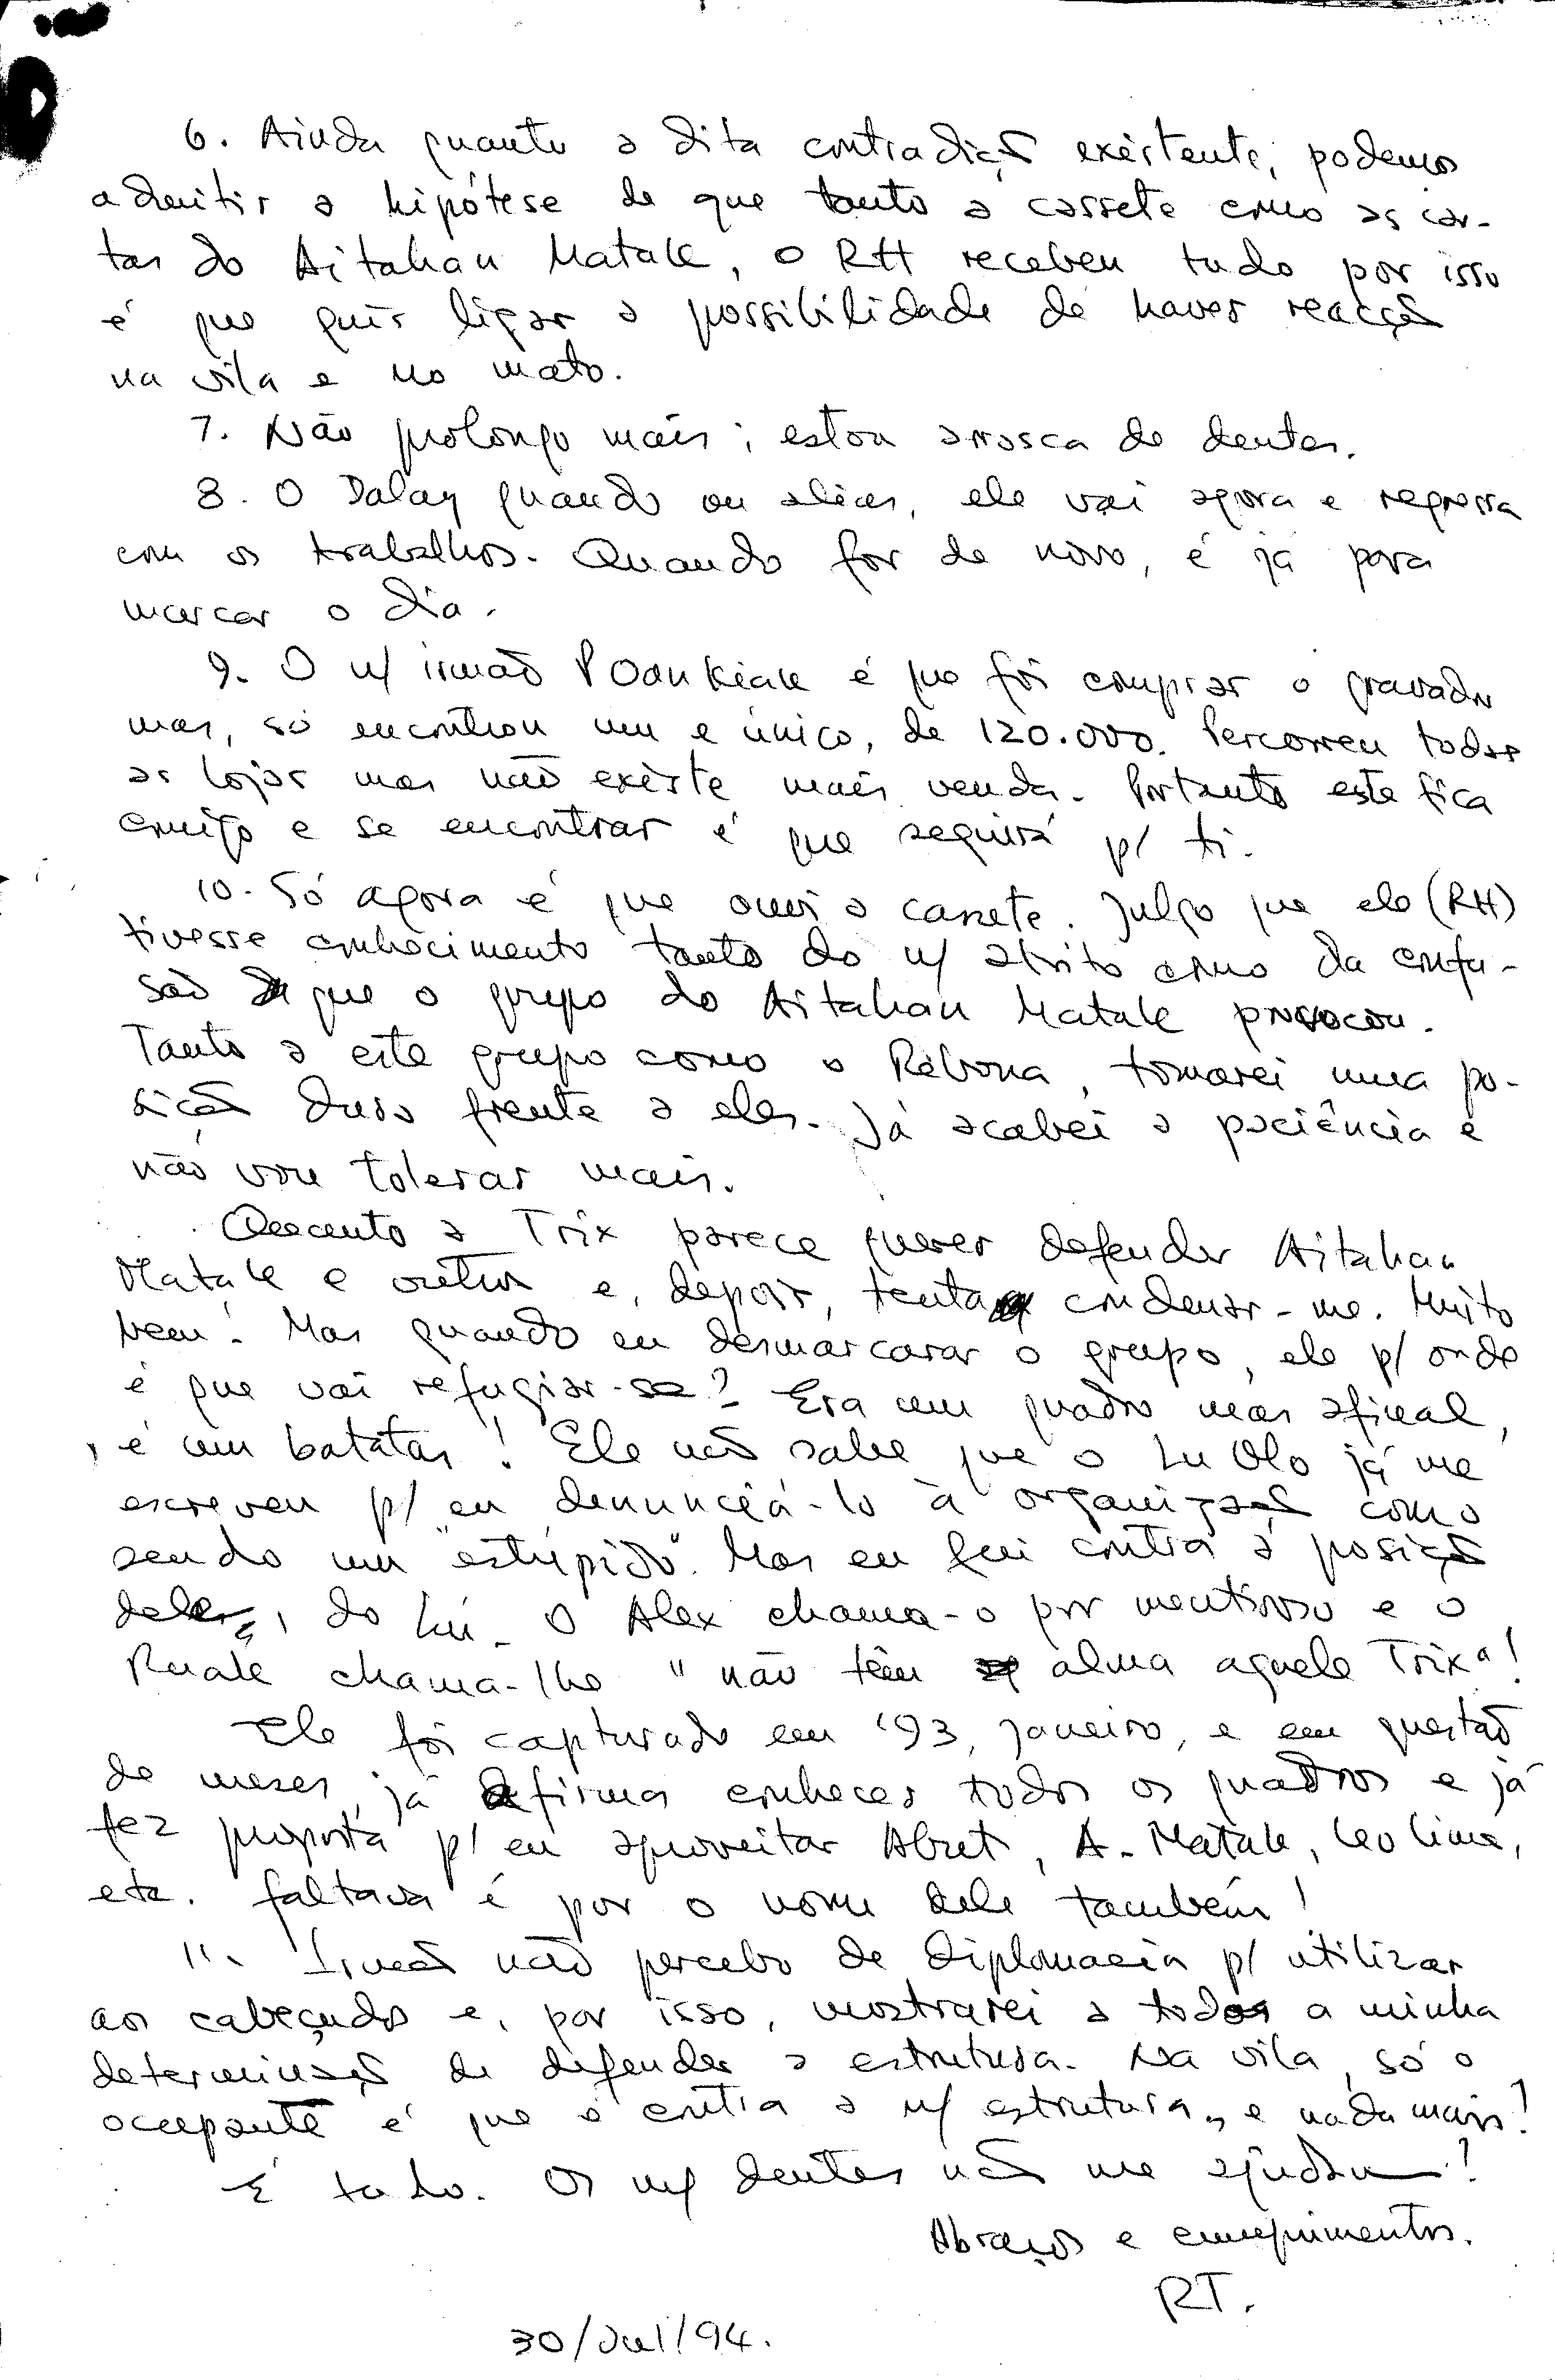 6. Ainda quanto a dita contradição existente, podemos
admitir a hipótese de que tanto a cassete como as car-
tas do Aitahan Matak, o RH recebeu tudo por isso
é que quis ligar a possibilidade de haver reacção
na vila e no mato.
7. Não prolongo mais; estou à rasca de dentes.
8. O Dalay quando ou aliás, ele vai agora e regressa
com os trabalhos. Quando for de novo, é já para
marcar o dia.
9. O n/ irmão é que foi comprar o gravador
mas, só encontrou um e único, de 120.000. Percorreu todas
as lojas mas não existe mais venda. Portanto este fica
comigo e se encontrar é que seguirá p/ ti.
10. Só agora é que ouvi a cassete. Julgo que ele (RH)
tivesse conhecimento tanto do n/ atrito como da confu-
são que o grupo do Aitahan Matak provocou.
Tanto a este grupo como o Rebona, tomarei uma po-
sição dura frente a eles. Já acabei a paciência e
não vou tolerar mais.
Quanto a Trix parece querer defender Aitahan
Matak e outros e, depois, tenta condenar-me. Muito
bem! Mas quando eu desmarcarar o grupo, ele p/ onde
é que vai refugiar-se? Era um quadro mas afinal,
é um batatas! Ele não sabe que o Lu Olo já me
escreveu p/ eu denunciá-lo à organização como
sendo um "estúpido". Mas eu fui contra a posição
dele, do Lu. O Alex chama-o por mentiroso e o
Ruak chama-lhe "não têm alma aquele Trix"!
Ele foi capturado em '93, Janeiro, e em questão
de meses, já afirma conhecer todos os quadros e já
fez proposta p/ eu aproveitar Abret, A. Matak, Leo Lima,
etc. faltava é por o nome dele também!
11. Irmão não percebo de diplomacia p/ utilizar
aos cabeçudos e, por isso, mostrarei a todos a minha
determinação de defender a estrutura. Na vila, só o
ocupante é que é contra a n/ estrutura, e nada mais!
É tudo. Os m/ dentes não me ajudam!
Abraços e cumprimentos.
RT.
30/Jul/94.